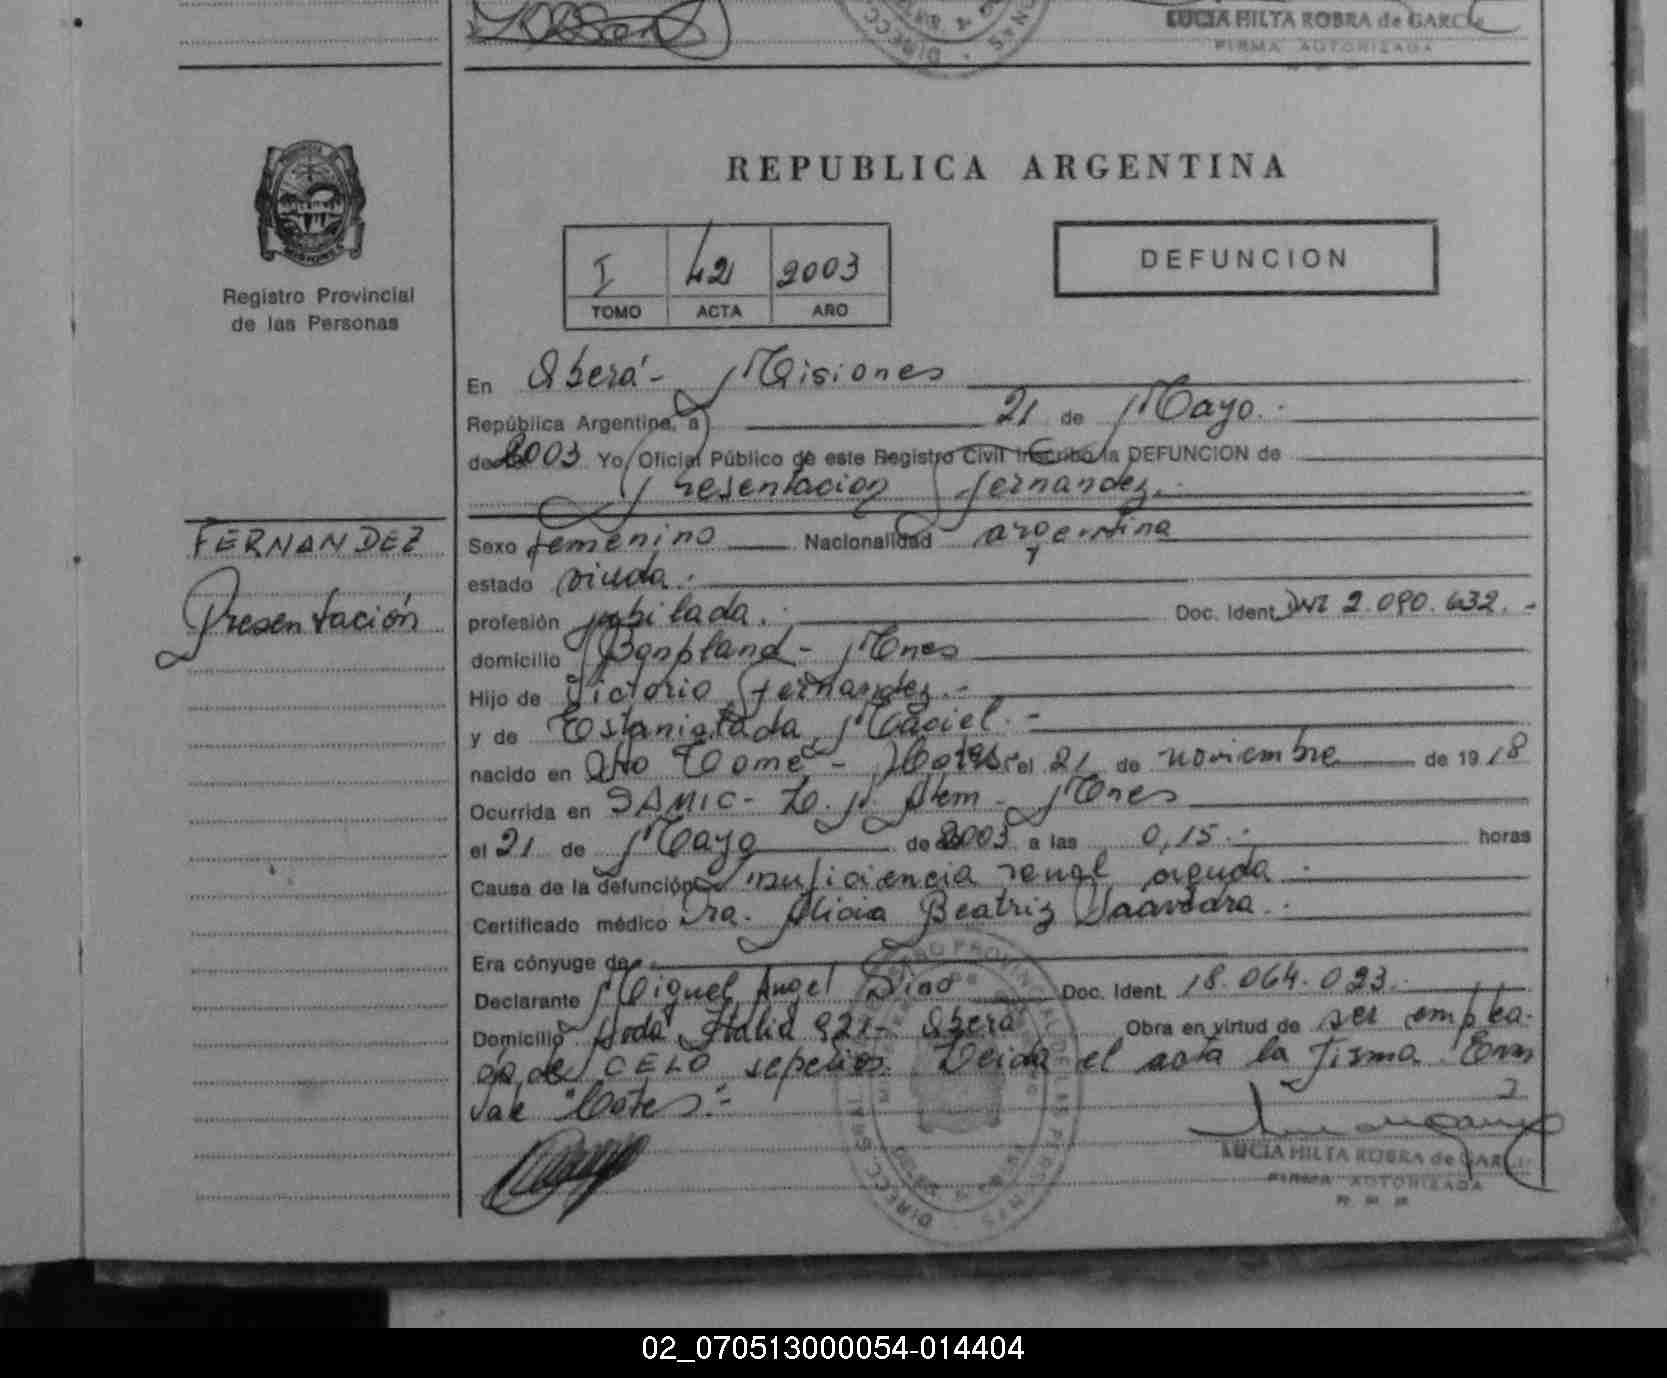 LUCIA HILTA ROBRA de GARCIA
FIRMA AUTORIZADA
REPUBLICA ARGENTINA
I 42 2003
TOMO ACTA AÑO
DEFUNCION
Registro Provincial
de las Personas
En Oberá - Misiones
República Argentina, a 21 de Mayo.-
de 2003 Yo Oficial Público de este Registro Civil inscribo la DEFUNCION de
Presentacion Fernandez.-
FERNANDEZ
Presentación
Sexo femenino Nacionalidad argentina
estado viuda.
profesión jubilada. Doc. Ident. DNI 2.090.632.-
domicilio Bonpland - Mnes
Hijo de Victorio Fernandez.-
y de Estanislada Maciel.-
nacido en Sto Tomé - Cotes el 21 de noviembre de 1918
Ocurrida en SAMIC - L. N. Alem - Mnes
el 21 de Mayo de 2003 a las 0,15.- horas
Causa de la defunción Insuficiencia renal aguda.-
Certificado médico Dra. Alicia Beatriz Saavedra.-
Era cónyuge de
Declarante Miguel Angel Dino Doc. Ident. 18.064.023.-
Domicilio Avda Italia 921 - Oberá Obra en virtud de ser emplea-
do de CELO sepelios. Leida el acta la firma. Enm
vale "Cotes".-
LUCIA HILTA ROBRA de GARCIA
FIRMA AUTORIZADA
02_070513000054-014404